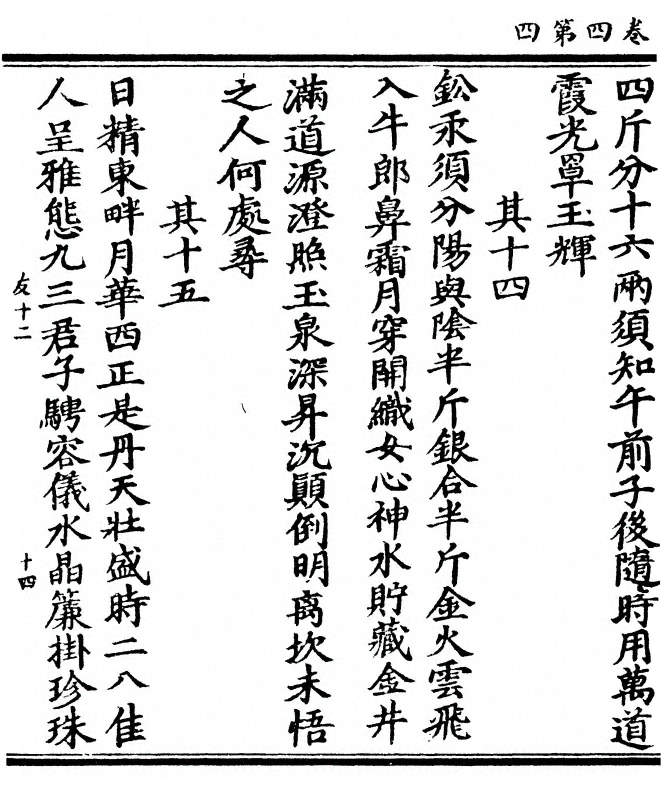 卷四第四
四斤分十六兩須知午前子後隨時用萬道
霞光罩玉輝
其十四
鈆汞須分陽與陰半斤銀合半斤金火雲飛
入牛郎鼻霜月穿開織女心神水貯藏金井
滿道源澄照玉泉深昇沉顚倒明离坎未悟
之人何處尋
其十五
日精東畔月華西正是丹天壯盛時二八佳
人呈雅態九三君子騁容儀水晶簾掛珍珠
友十二
十四